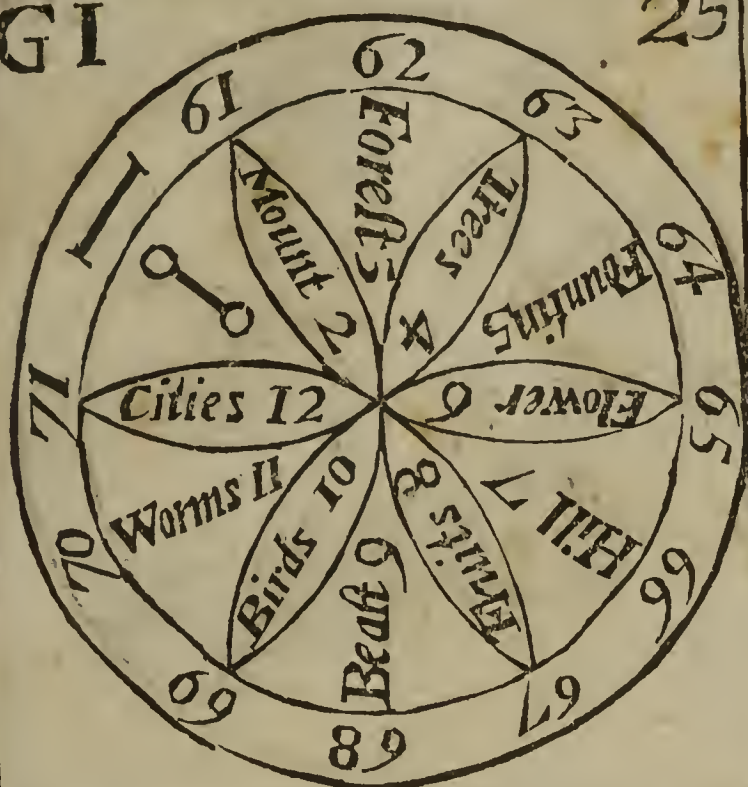 GI
25
61
62
63
64
65
66
67
68
69
70
71
I
Mount 2
Foreſt 3
Trees 4
Fountin 5
Flower 6
Hill 7
Fruits 8
Beaſt 9
Birds 10
Worms 11
Cities 12